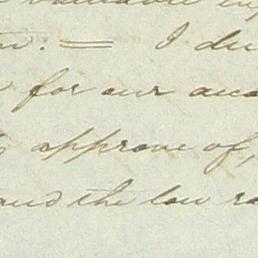 valuable
I du
for our acc
approve of,
and the low ra